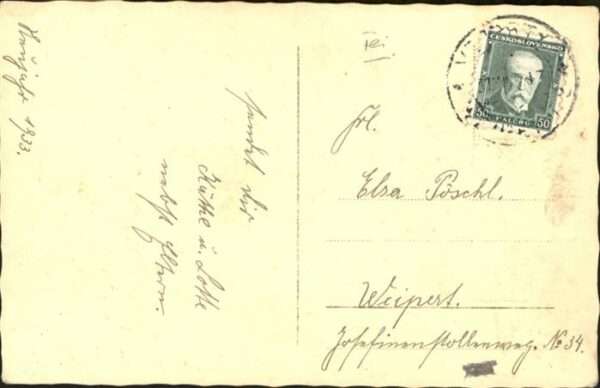 Neujahr 1933.
sendet dir
Käthe u. Lotte
nebst Eltern
ČESKOSLOVENSKO
50 HALÉŘŮ 50
Frl.
Elsa Pöschl.
Weipert.
Josefinenstollenweg. No 34.